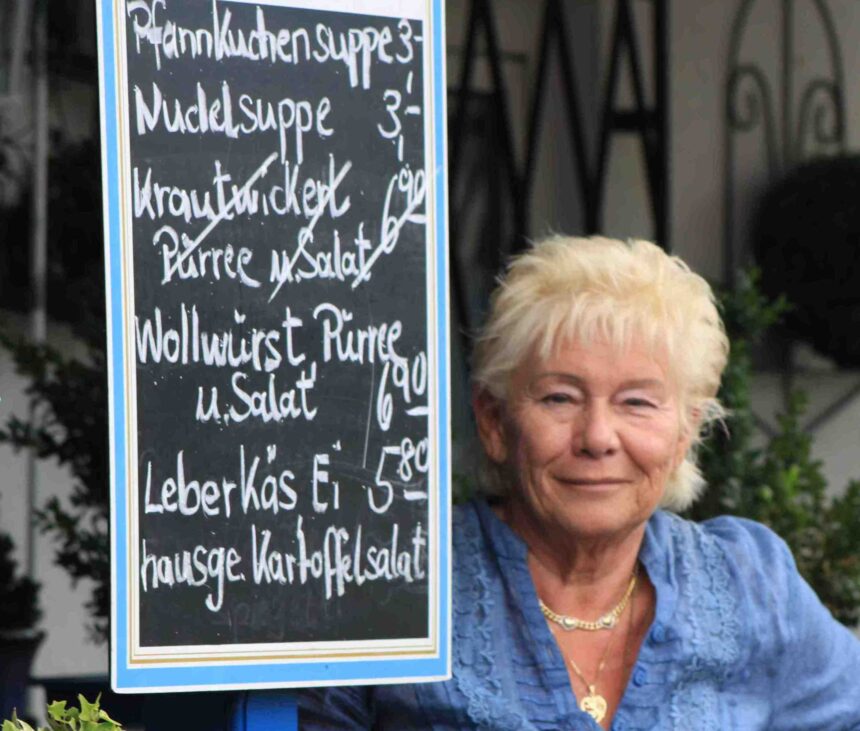 Pfannkuchensuppe 3,-
Nudelsuppe 3,-
Krautwickerl
Pürree u. Salat 6 90
Wollwürst Pürree
u. Salat 6 90
Leberkäs Ei 5 80
hausge. Kartoffelsalat